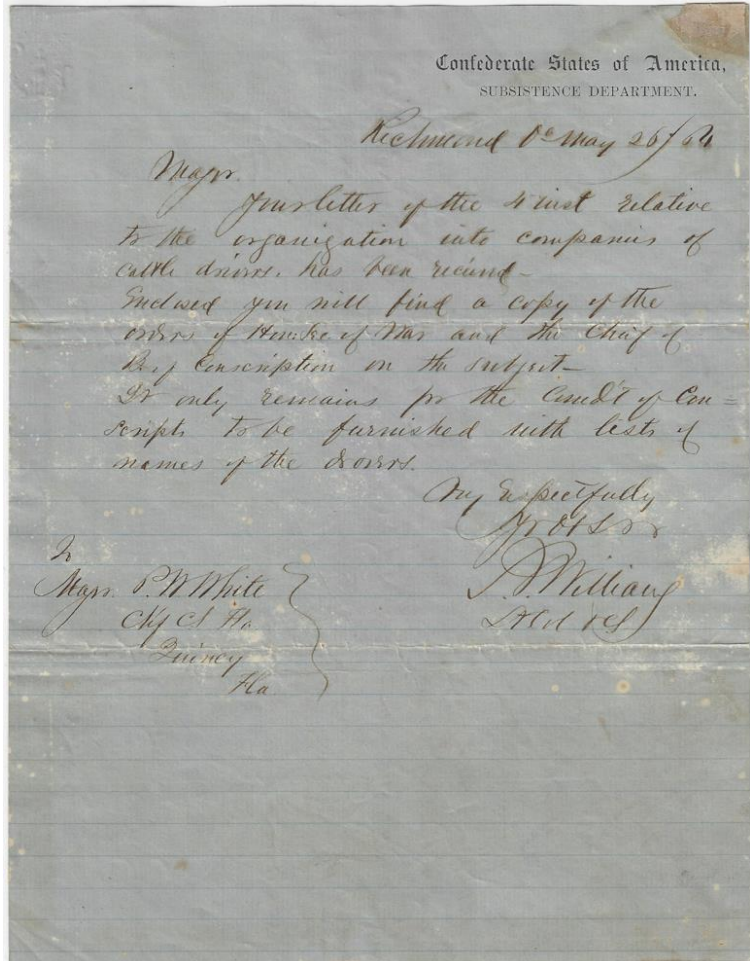 Confederate States of America,
SUBSISTENCE DEPARTMENT.
Richmond Va May 26/64
Major.
Your letter of the 4 inst relative
to the organization into companies of
cattle drivers. has been received -
Enclosed you will find a copy of the
orders of Hon. Sec of War and the Chief of
Conscription on the subject -
It only remains for the Comd't of Con=
scripts to be furnished with lists of
names of the drovers.
Very Respectfully
Yr Ob Svr
Williams
To
Major. P. W White
Chf CS Fla
Quincy
Fla